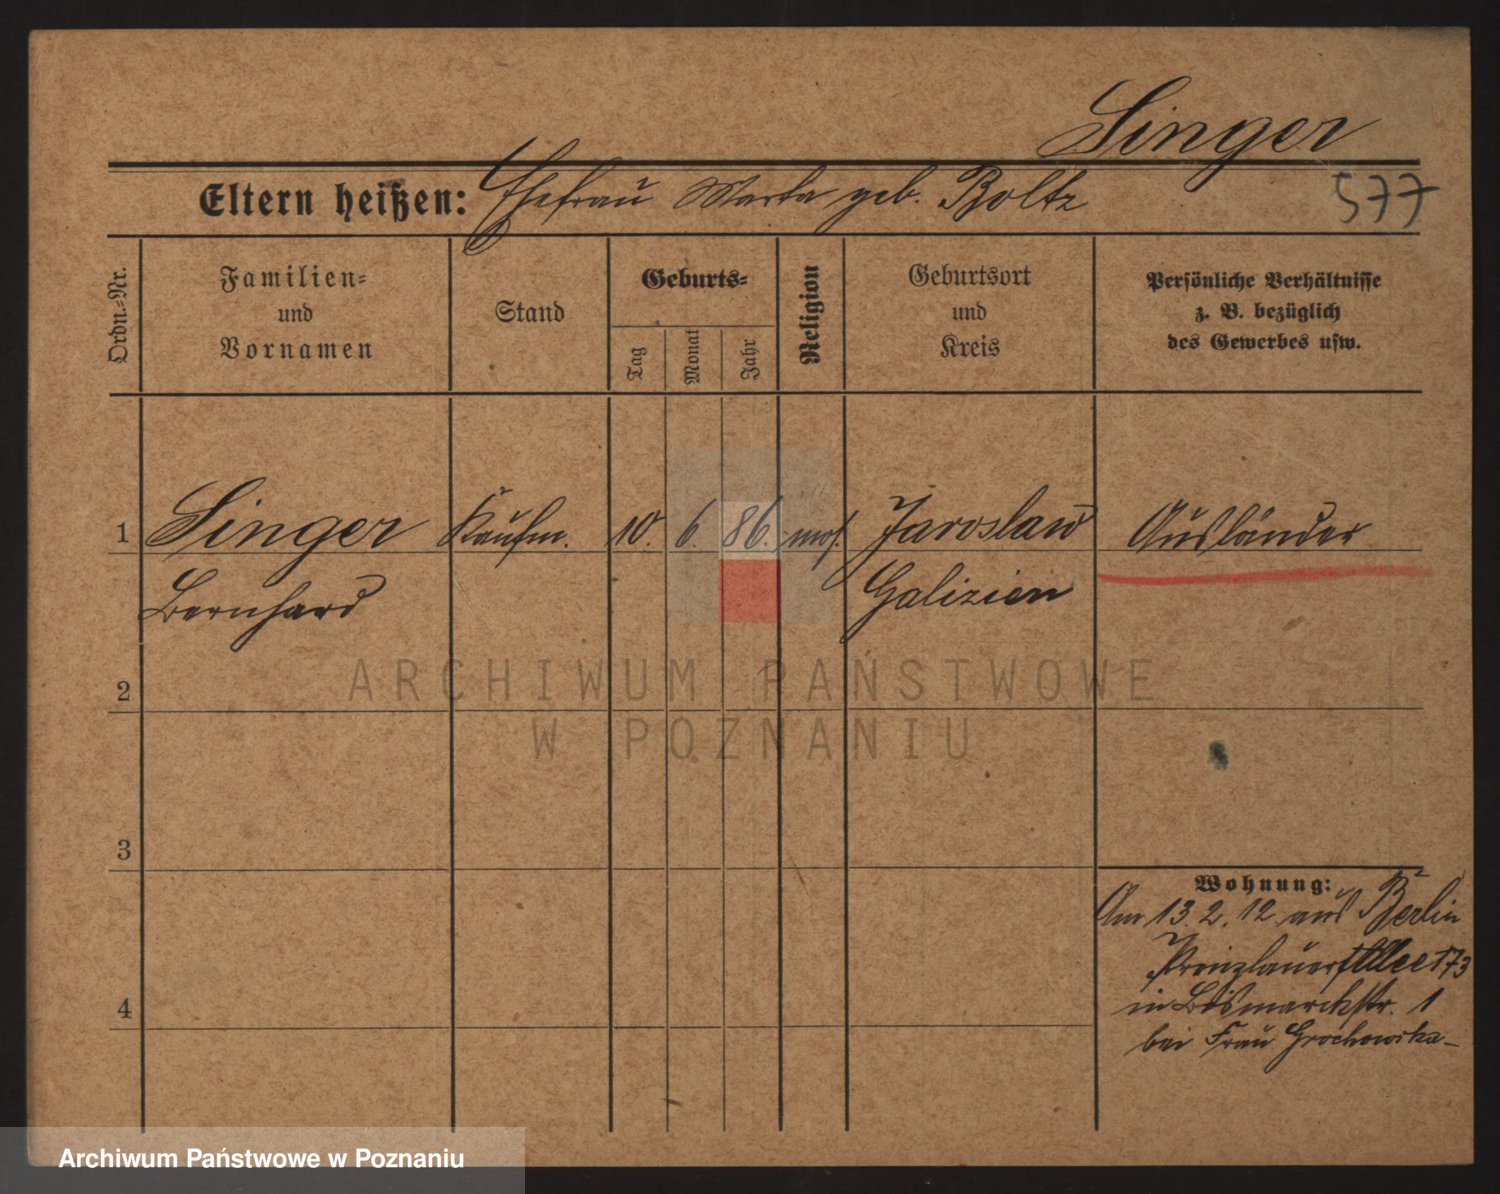 Singer
577
Eltern heißen: Ehefrau Marta geb. Boltz
Ordn.-Nr.
Familien-
und
Vornamen
Stand
Geburts-
Tag
Monat
Jahr
Religion
Geburtsort
und
Kreis
Persönliche Verhältnisse
z. B. bezüglich
des Gewerbes usw.
1 Singer Kaufm. 10. 6. 86. mos. Jaroslaw Ausländer
Bernhard Galizien
2
3
4
Wohnung:
Am 13.2.12. aus Berlin
Prenzlauer Allee 173
in Bismarckstr. 1
bei Frau Grochowska
ARCHIWUM PAŃSTWOWE
W POZNANIU
Archiwum Państwowe w Poznaniu